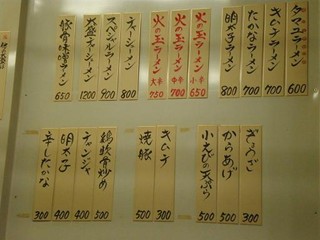 ラーメン 600
キムチラーメン 700
たかなラーメン 700
明太子ラーメン 800
火の玉ラーメン 小辛 650
火の玉ラーメン 中辛 700
火の玉ラーメン 大辛 750
チャーシューメン 800
スペシャルラーメン 900
大盛チャーシューメン 1200
豚骨味噌ラーメン 650
ぎょうざ 300
からあげ 500
小えびの天ぷら 500
キムチ 300
焼豚 500
鶏軟骨炒め 500
チャンジャ 400
明太子 400
辛したかな 300